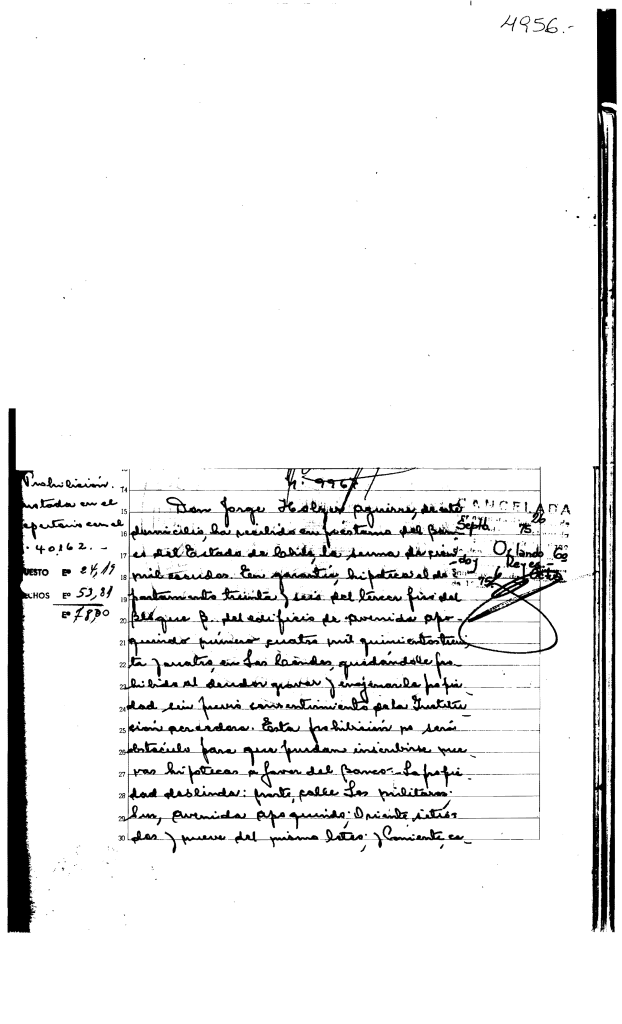 4956.-
Prohibición.
anotada en el
repertorio con el
40162.-
UESTO Eº 24,19
CHOS Eº 53,81
Eº 78,00
14
15 Don Jorge Holger Aguirre, de este
16 domicilio, ha recibido en préstamo del Ban-
17 co del Estado de Chile, la suma de cien
18 mil escudos. En garantía, hipoteca el de-
19 partamento treinta y seis del tercer piso del
20 Bloque B. del edificio de avenida Apo-
21 quindo número cuatro mil quinientos trein-
22 ta y cuatro, en Las Condes, quedándole pro-
23 hibido al deudor gravar y enajenar la propie-
24 dad sin previo consentimiento de la Institu-
25 ción acreedora. Esta prohibición no será
26 obstáculo para que puedan inscribirse nue-
27 vas hipotecas a favor del Banco.- La propie-
28 dad deslinda: Norte, calle Los Militares;
29 Sur, avenida Apoquindo; Oriente, sitios
30 dos y nueve del mismo loteo; y Poniente, ca-
CANCELADA
26
Septb 75
Orlando
Reyes